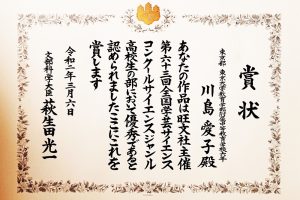 賞状
川島愛子殿
あなたの作品は旺文社主催
第六十三回全国学芸サイエンス
コンクールサイエンスジャンル
高校生の部において優秀であると
認められましたここにこれを
賞します
令和二年三月六日
文部科学大臣 萩生田光一